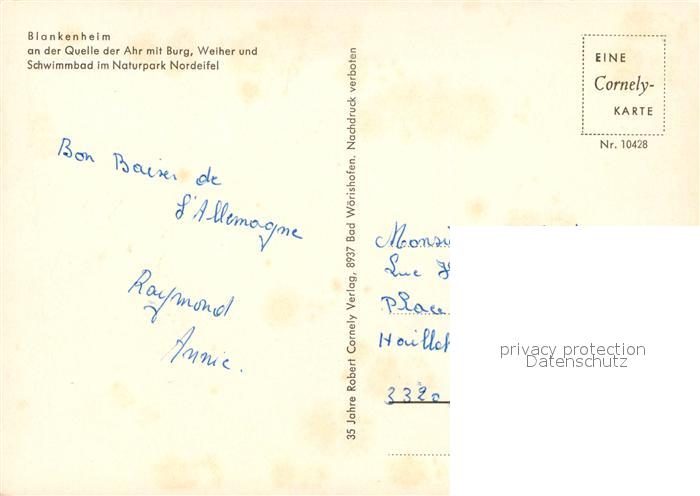 Blankenheim
an der Quelle der Ahr mit Burg, Weiher und
Schwimmbad im Naturpark Nordeifel
EINE
Cornely-
KARTE
Nr. 10428
Bon Baiser de
l'Allemagne
Raymond
Annie.
35 Jahre Robert Cornely Verlag, 8937 Bad Wörishofen. Nachdruck verboten
Luc
Place
3320
privacy protection
Datenschutz